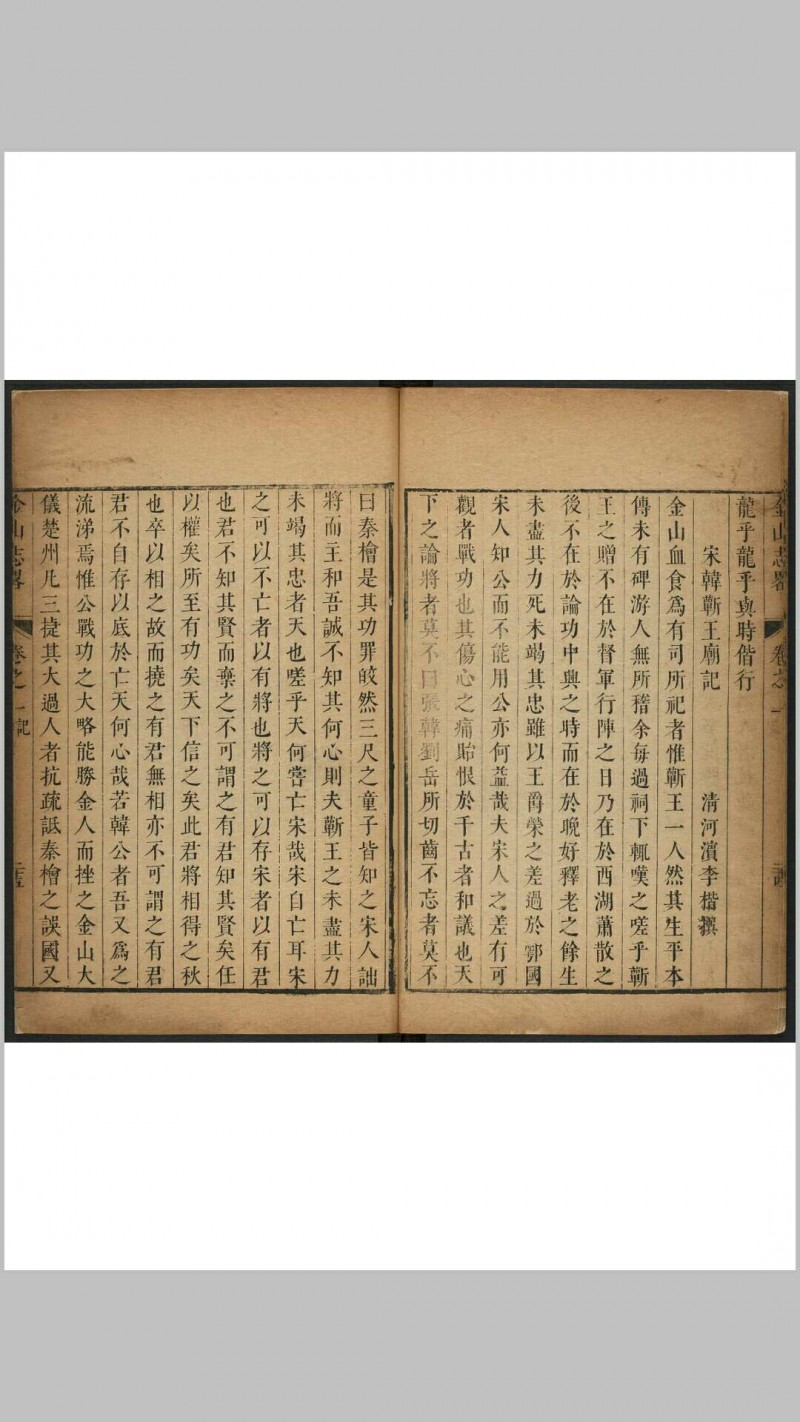 金山志畧 卷之一
龍乎龍乎與時偕行
宋韓蘄王廟記 清河濱李楷撰
金山血食爲有司所祀者惟蘄王一人然其生平本
傳未有碑游人無所稽余每過祠下輒嘆之嗟乎蘄
王之贈不在於督軍行陣之日乃在於西湖蕭散之
後不在於論功中興之時而在於晚好釋老之餘生
未盡其力死未竭其忠雖以王爵榮之差過於鄂國
宋人知公而不能用公亦何益哉夫宋人之差有可
觀者戰功也其傷心之痛貽恨於千古者和議也天
下之論將者莫不曰張韓劉岳所切齒不忘者莫不
曰秦檜是其功罪皎然三尺之童子皆知之宋人詘
將而主和吾誠不知其何心則夫蘄王之未盡其力
未竭其忠者天也嗟乎天何嘗亡宋哉宋自亡耳宋
之可以不亡者以有將也將之可以存宋者以有君
也君不知其賢而棄之不可謂之有君知其賢矣任
以權矣所至有功矣天下信之矣此君將相得之秋
也卒以相之故而撓之有君無相亦不可謂之有君
君不自存以底於亡天何心哉若韓公者吾又爲之
流涕焉惟公戰功之大略能勝金人而挫之金山大
儀楚州凡三捷其大過人者抗疏詆秦檜之誤國又
金山志畧 卷之一 記